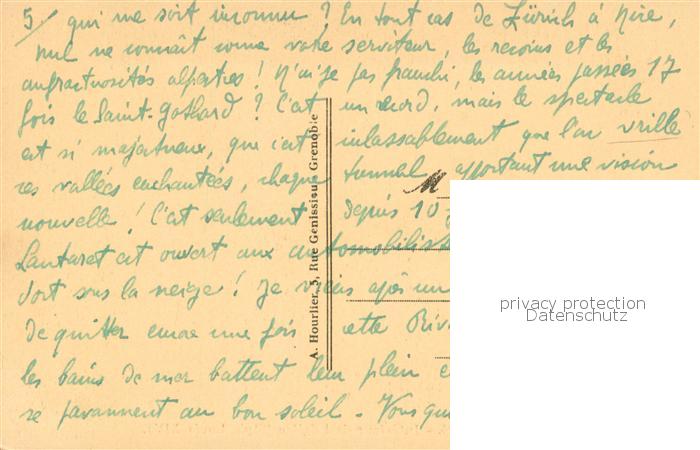 5/ qui me soit inconnu ? En tout cas de Zürich à Nice,
nul ne connaît comme votre serviteur, les recoins et les
anfractuosités alpestres ! N'ai-je pas franchi, les années passées 17
fois le Saint-Gothard ? C'est un record, mais le spectacle
est si majestueux, que c'est inlassablement que l'on vrille
ces vallées enchantées, chaque tunnel apportant une vision
nouvelle ! C'est seulement depuis 10
Lautaret est ouvert aux automobilist
dort sous la neige ! Je viens après un
de quitter encore une fois cette Riv
les bains de mer battent leur plein e
se pavannent au bon soleil - Vous qui
A. Hourlier, 5, Rue Genissieu, Grenoble
privacy protection
Datenschutz